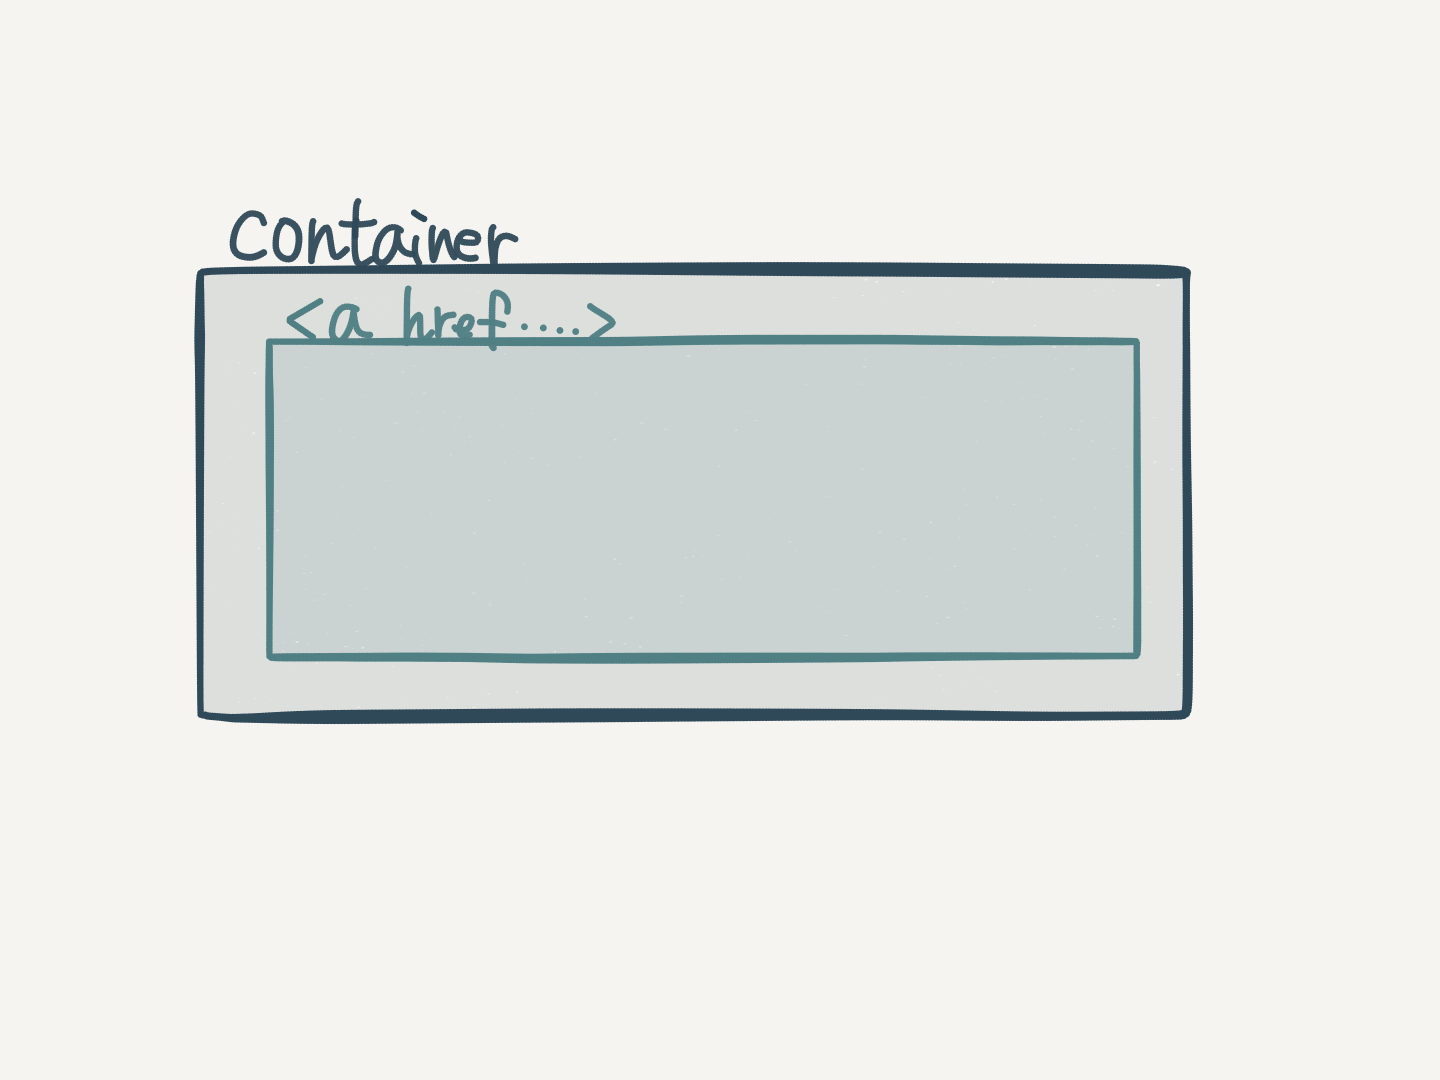 Container
<a href....>